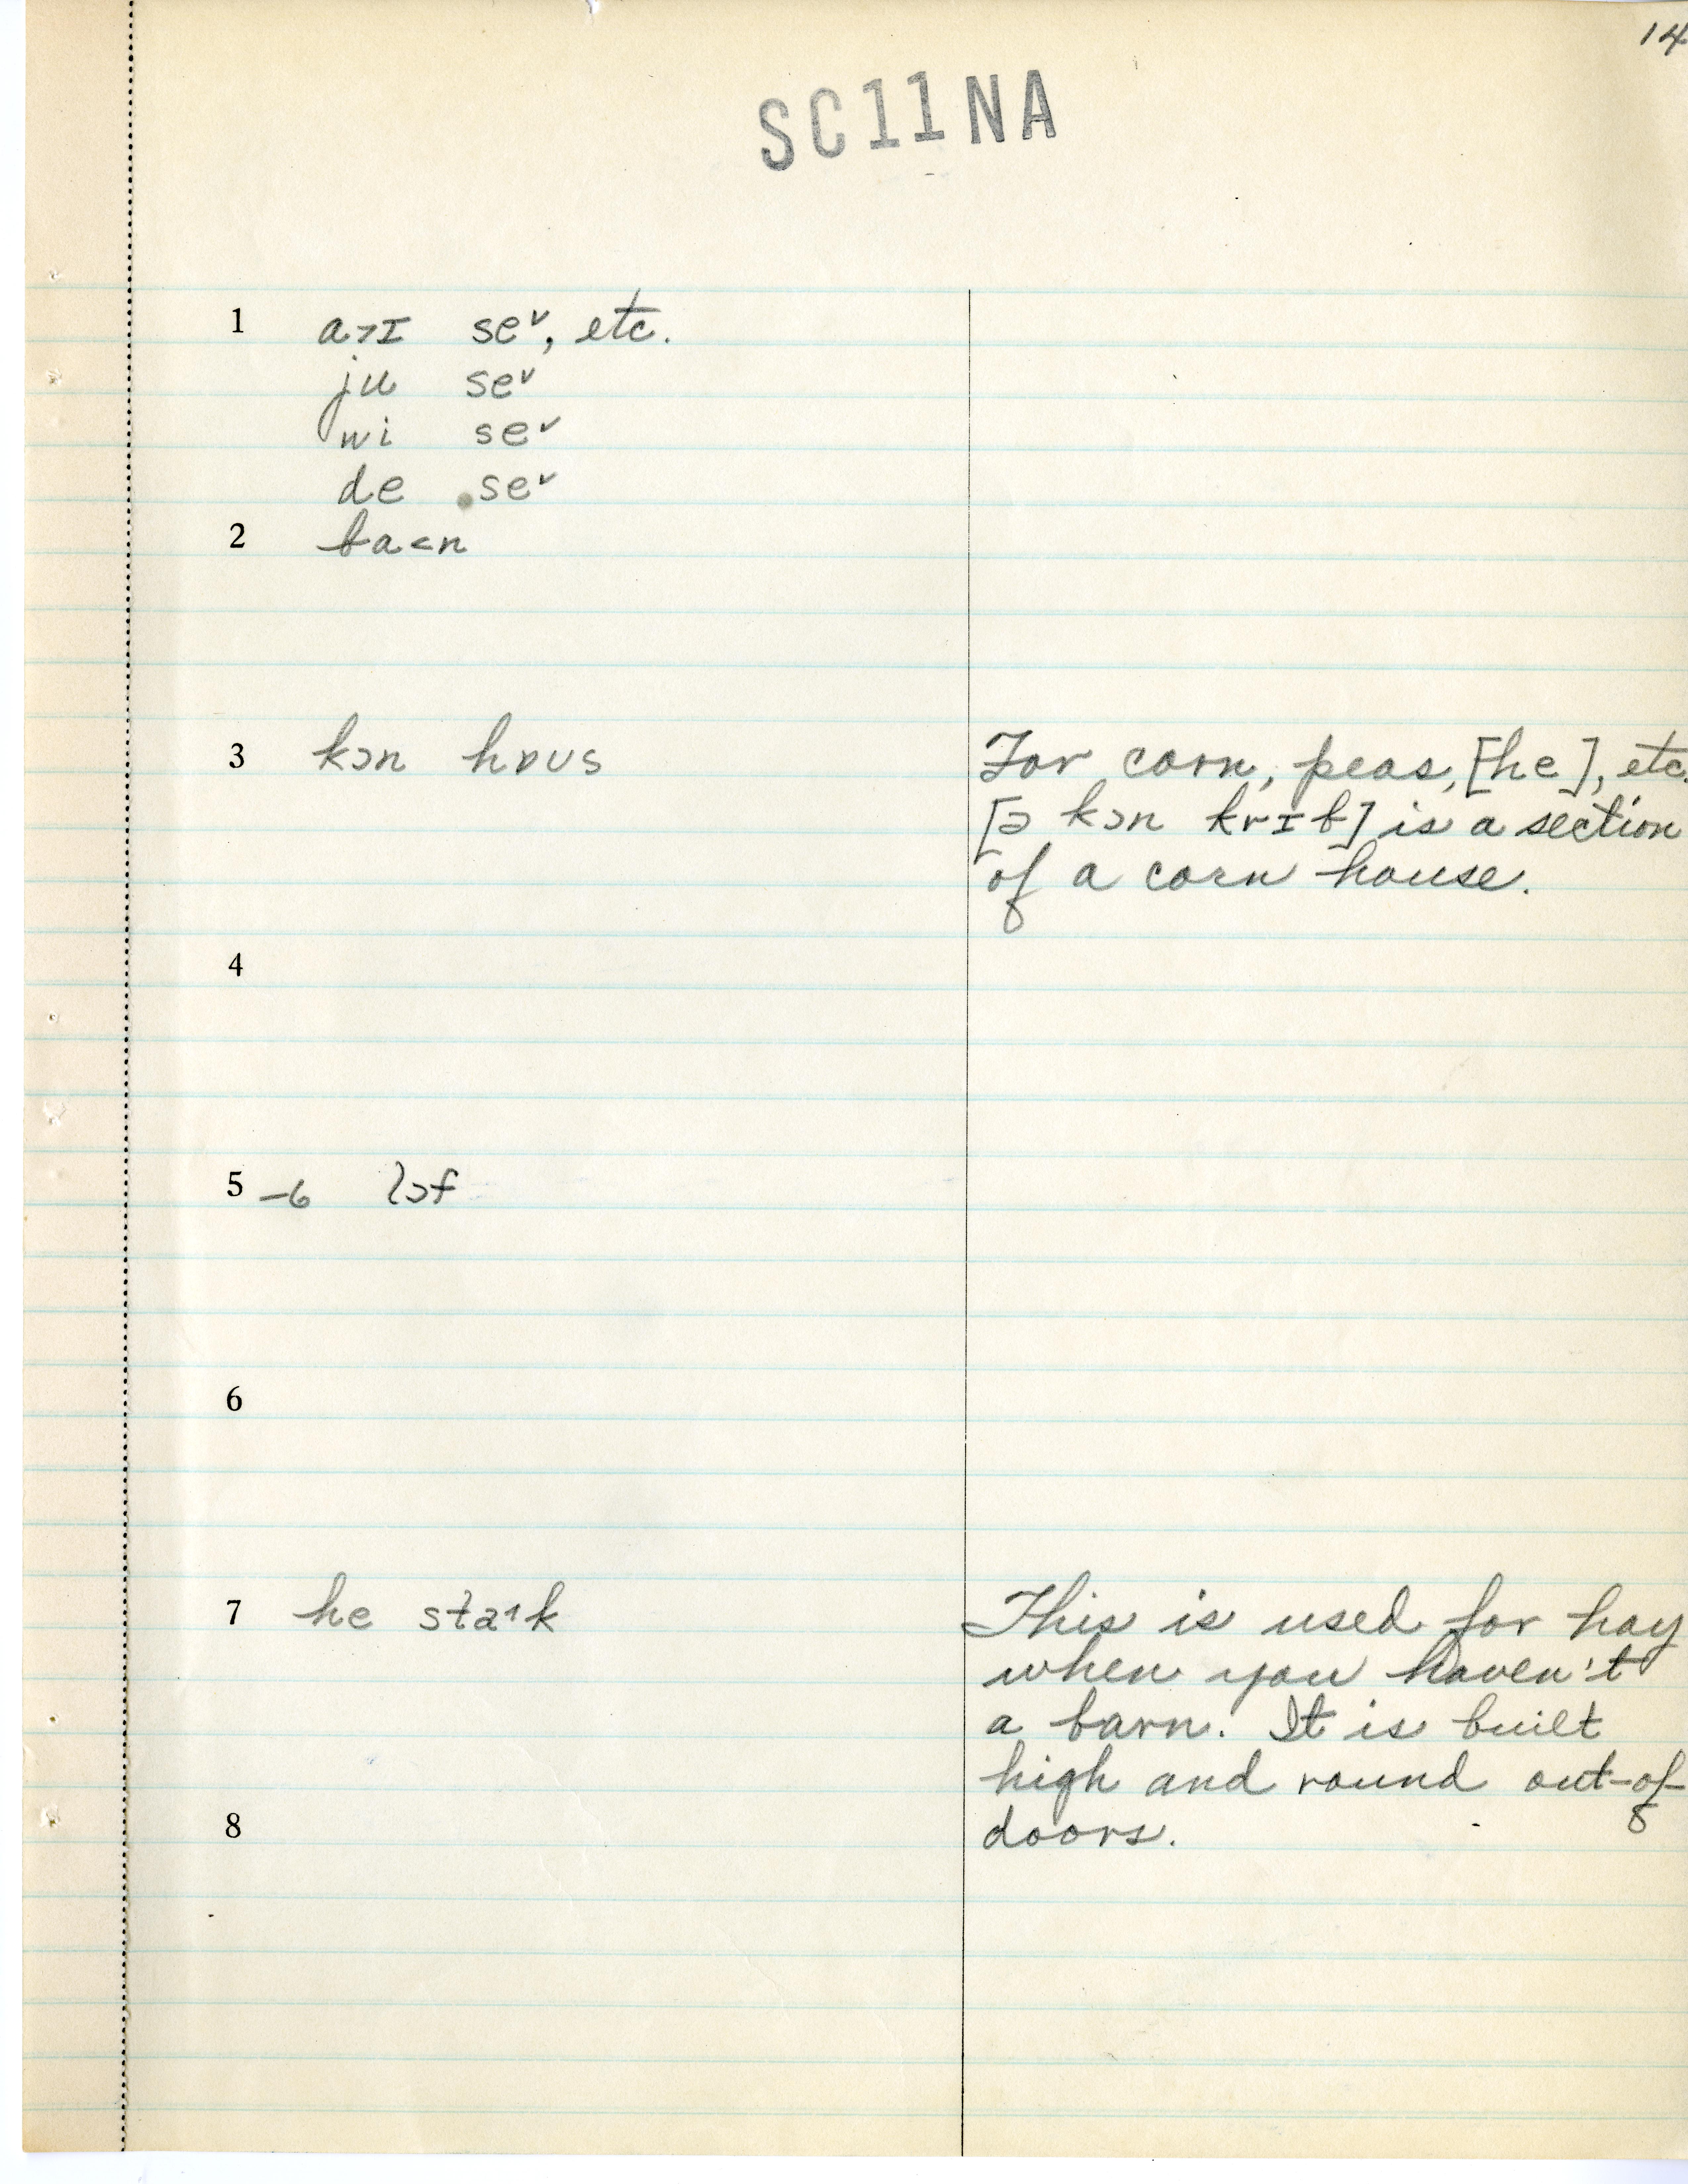 14
SC11NA
1 a>ɪ seˇ, etc.
ju seˇ
wi seˇ
de seˇ
2 ba<n
3 kɔn hɒʊs
For corn, peas, [he], etc.
[ə kɔn krɪb] is a section
of a corn house.
4
5 -6 lɔf
6
7 he sta˄k
This is used for hay
when you haven't
a barn. It is built
high and round out-of-
doors.
8